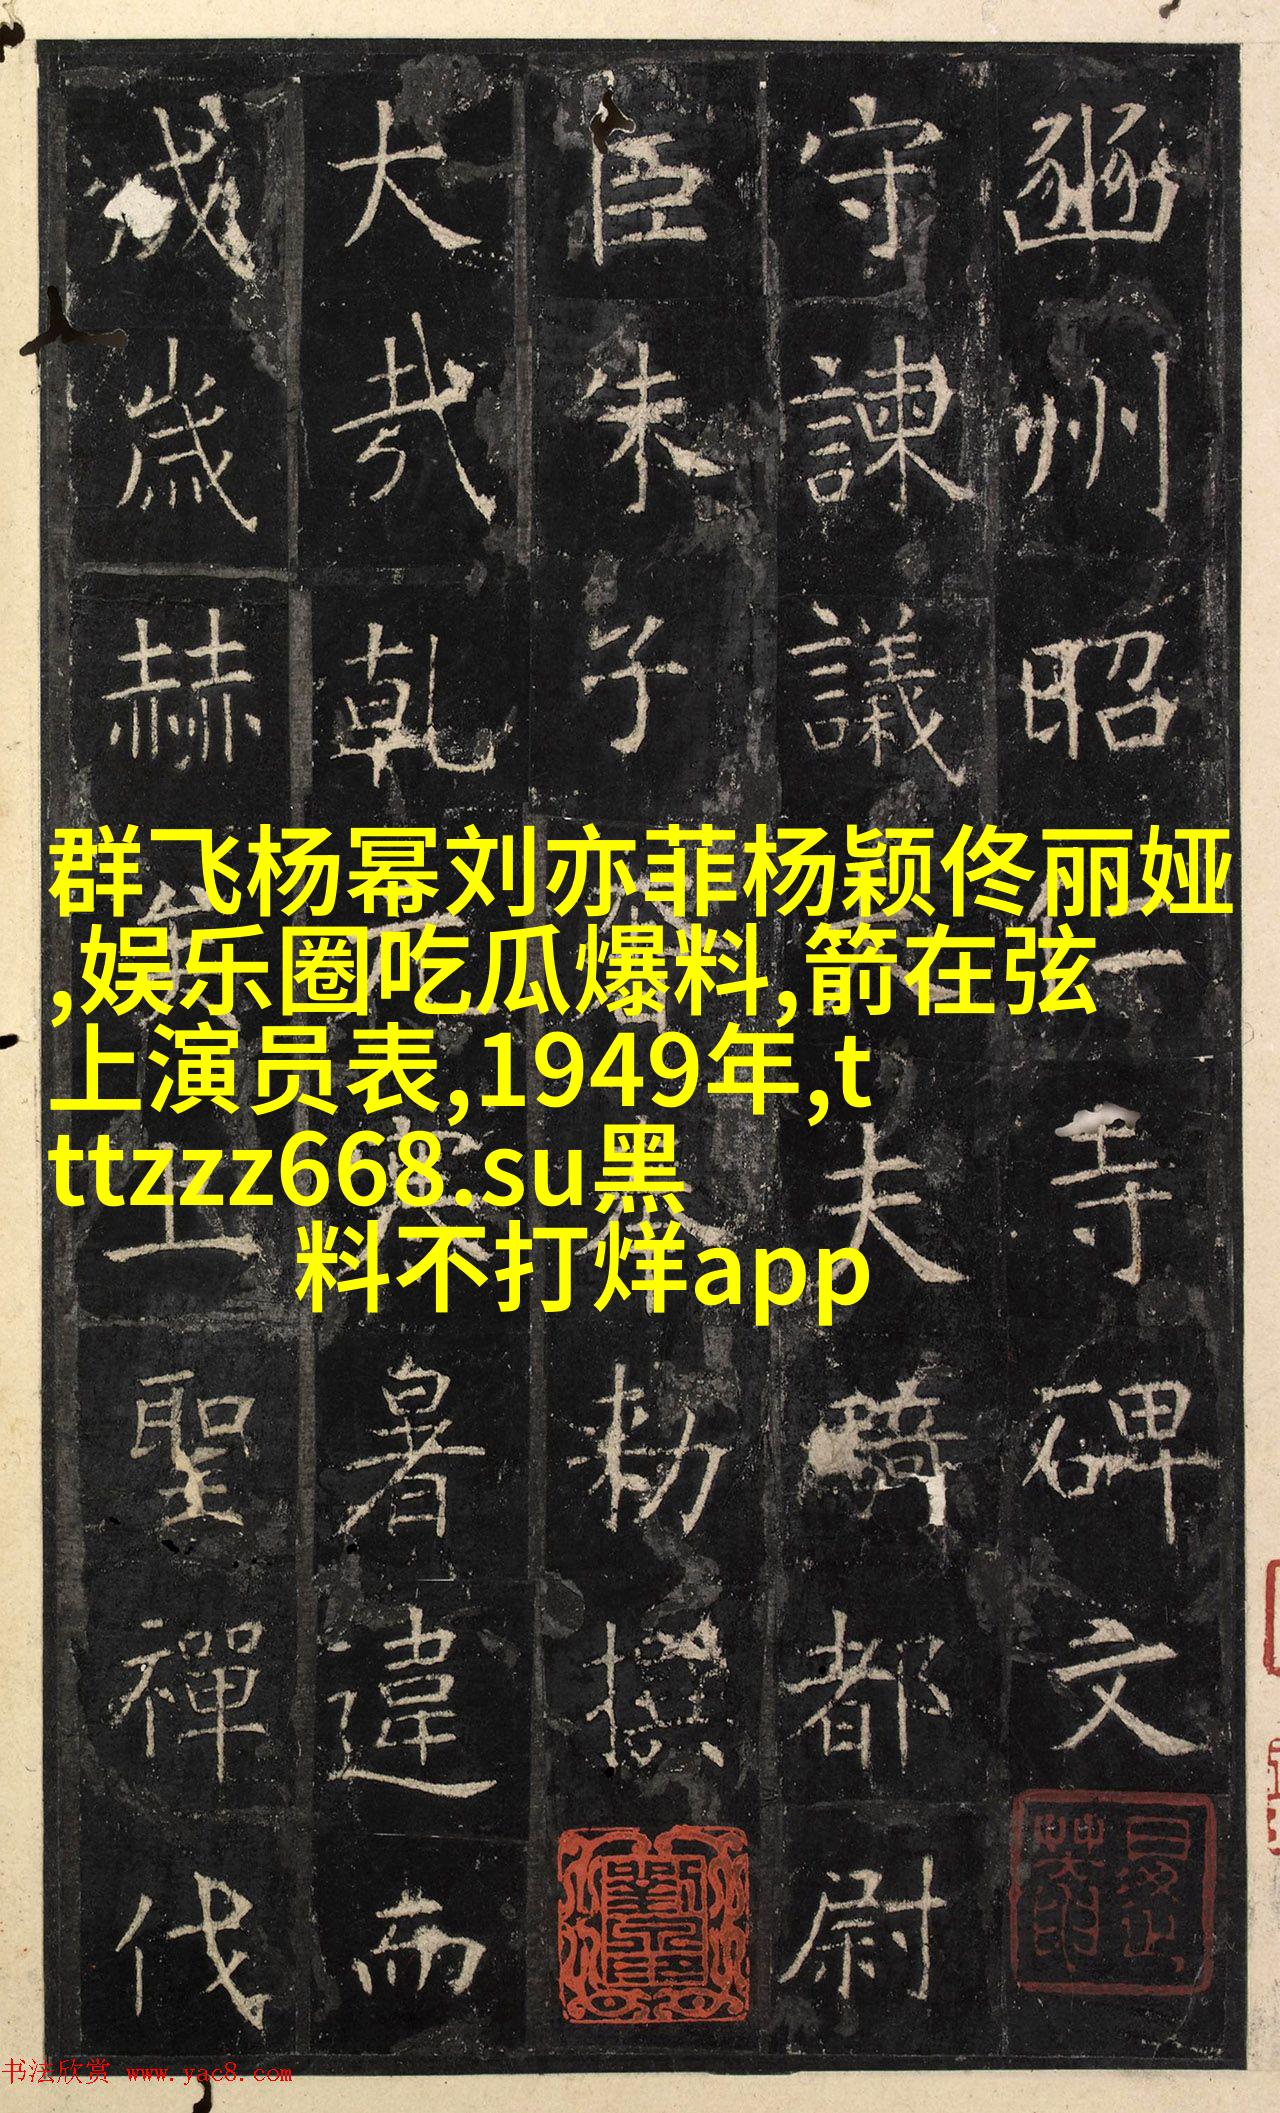 豳州昭仁寺碑文
守諫議夫騎都尉
臣朱子勑撰
大哉乾暑違而
成歲赫上聖禪代
群飞杨幂刘亦菲杨颖佟丽娅
,娱乐圈吃瓜爆料,箭在弦
上演员表,1949年,t
ttzzz668.su黑
料不打烊app
书法欣赏 www.yac8.com